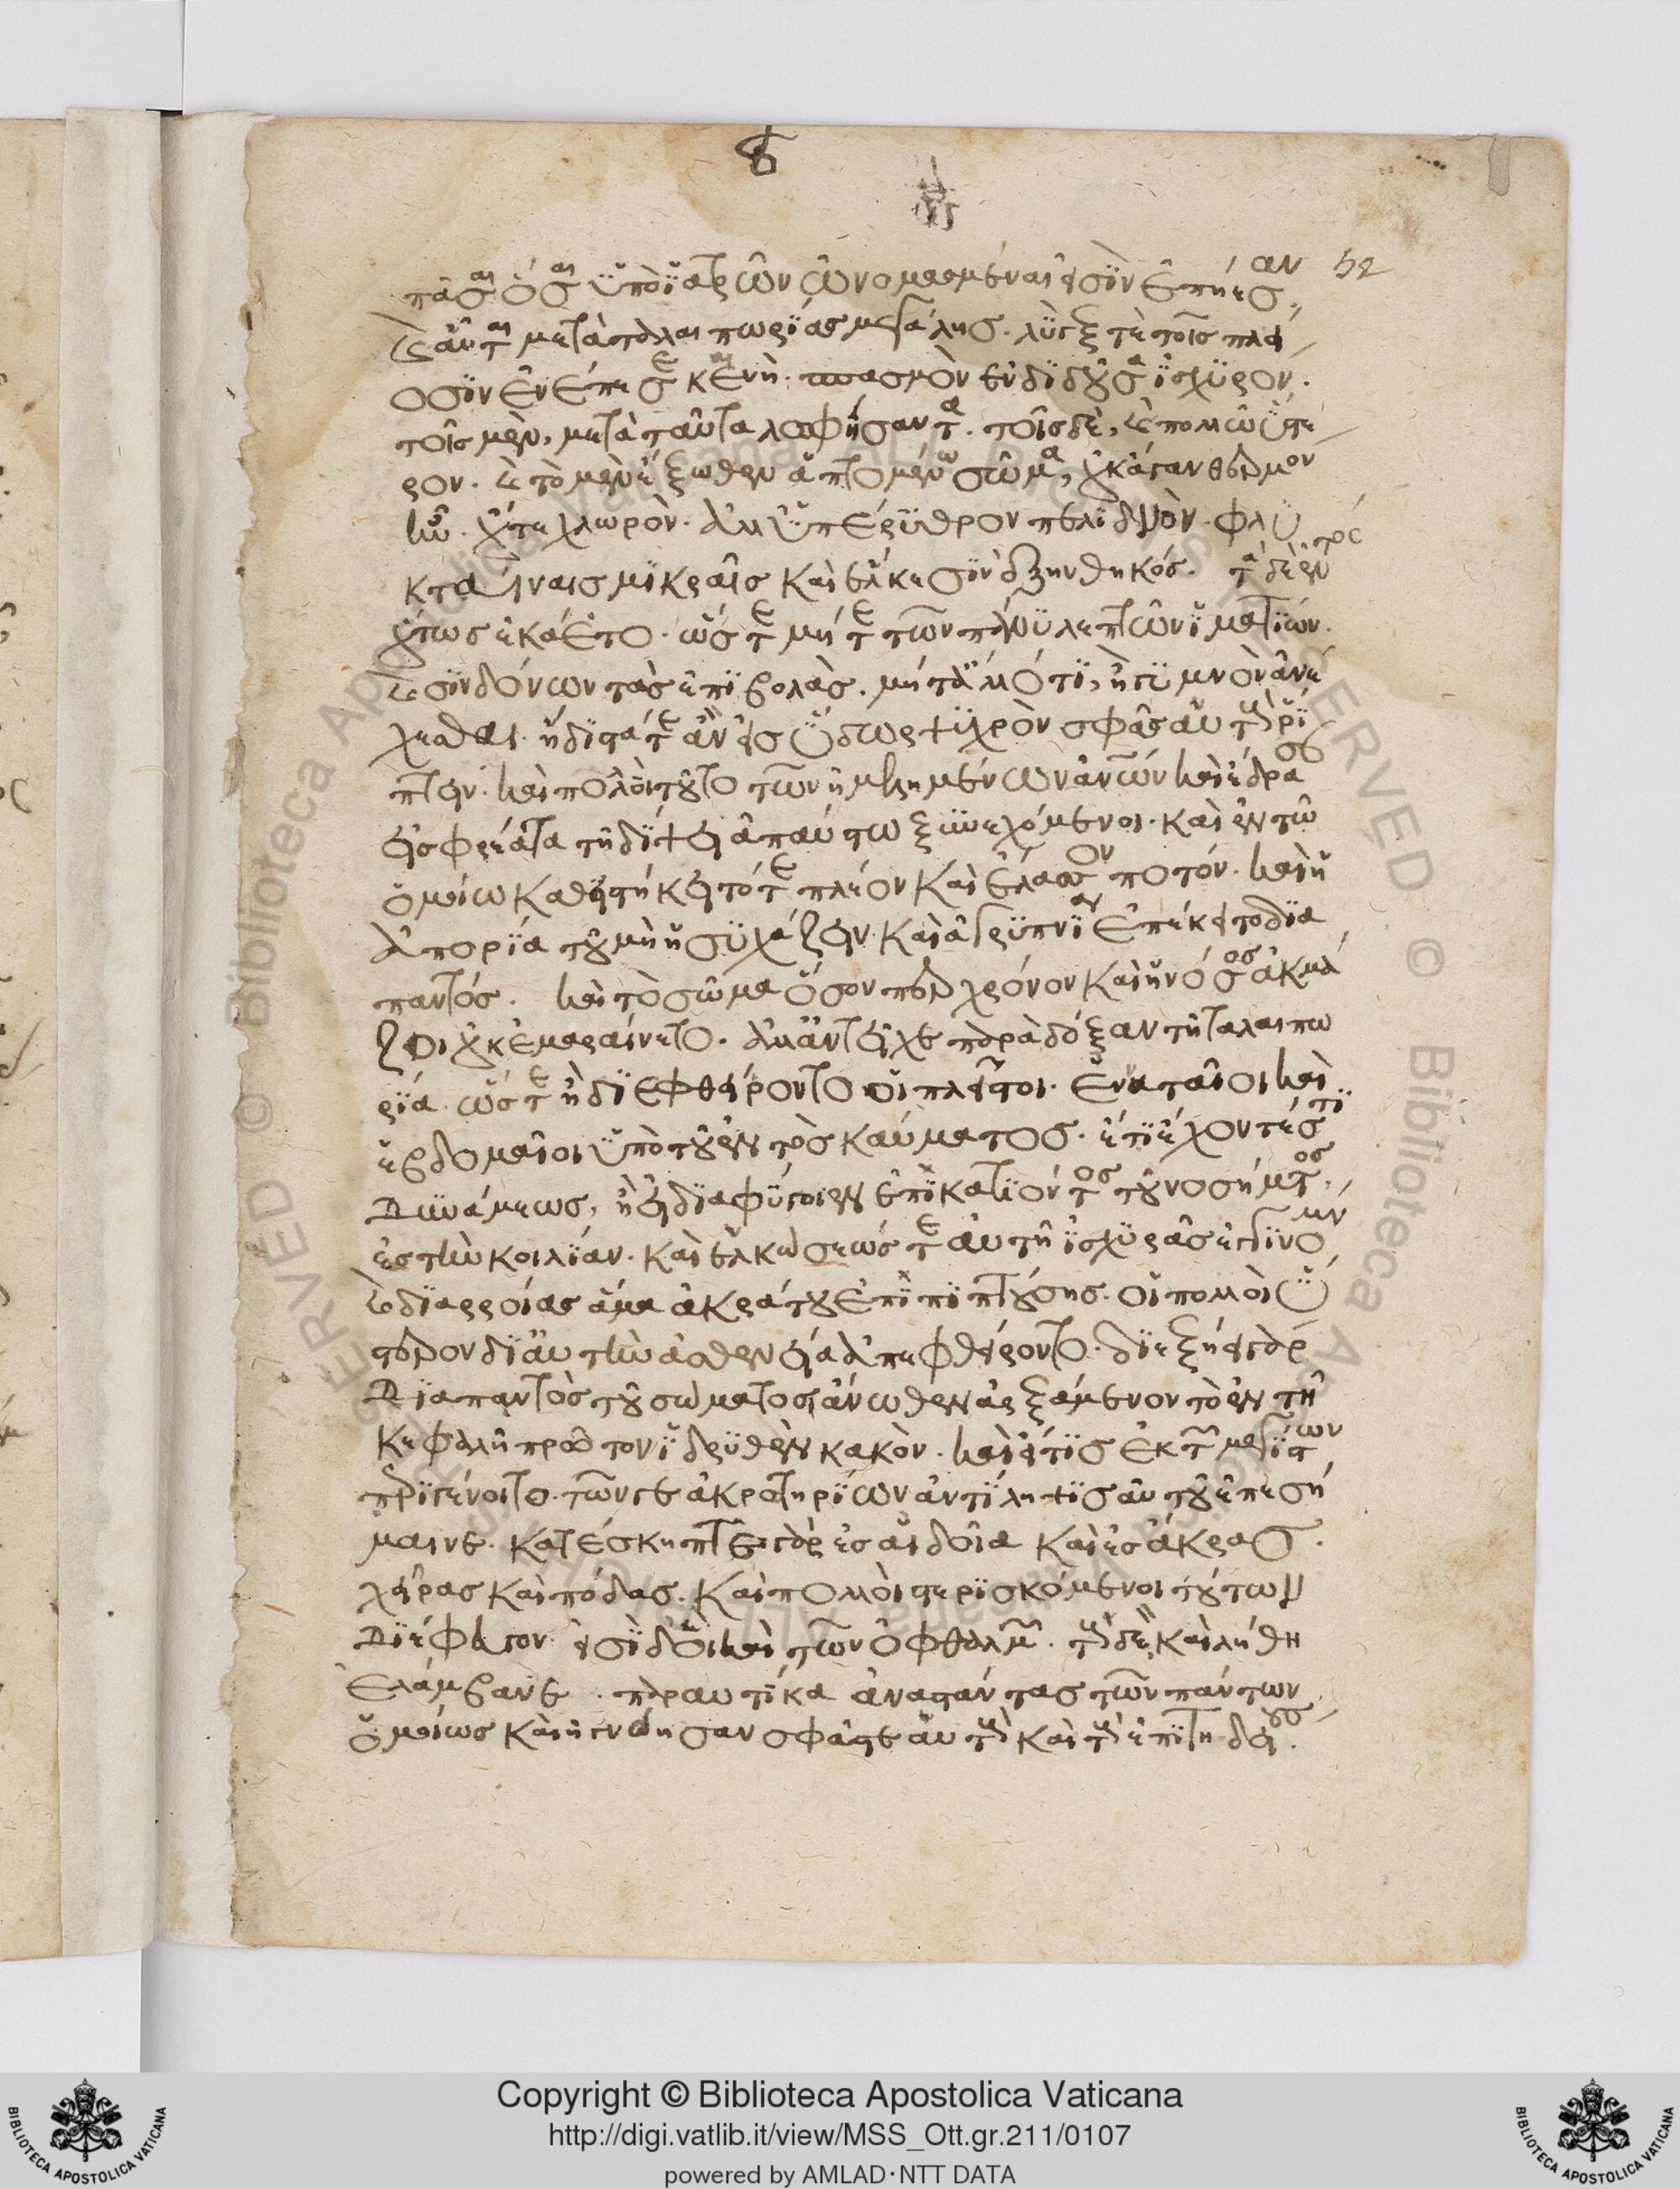 δ
52
πᾶσαι ὅσαι ὑπὸ ἰατρῶν ὠνομασμέναι εἰσὶν ἐπῄεσαν.
καὶ αὗται μετὰ ταλαιπωρίας μεγάλης. λύγξ τε τοῖς πλεί
οσιν ἐνέπεσε κενὴ. σπασμὸν ἐνδιδοῦσα ἰσχυρὸν.
τοῖς μὲν, μετὰ ταῦτα λωφήσαντα. τοῖς δὲ, καὶ πολλῷ ὕστε
ρον. καὶ τὸ μὲν ἔξωθεν ἁπτομένῳ σῶμα, οὐκ ἄγαν θερμὸν
ἦν. οὔτε χλωρὸν. ἀλλ' ὑπέρυθρον πελιδνὸν. φλυ
κταίναις μικραῖς καὶ ἕλκεσιν ἐξηνθηκός. τὰ δὲ ἐντὸς
οὕτως ἐκάετο. ὥστε μήτε τῶν πάνυ λεπτῶν ἱματίων.
καὶ σινδόνων τὰς ἐπιβολὰς. μήτ' ἄλλό τι, ἢ γυμνὸν ἀνέ
χεσθαι. ἥδιστά τε ἂν ἐς ὕδωρ ψυχρὸν σφᾶς αὐτοὺς ῥί
πτειν. καὶ πολλοὶ τοῦτο τῶν ἠμελημένων ἀνθρώπων καὶ ἔδρασαν
εἰς φρέατα τῇ δίψει ἀπαύστω ξυνεχόμενοι. καὶ ἐν τῷ
ὁμοίω καθειστήκει τό τε πλέον καὶ ἔλασσον ποτόν. καὶ ἡ
ἀπορία τοῦ μὴ ἡσυχάζειν. καὶ ἀγρυπνία ἐπέκειτο διὰ
παντός. καὶ τὸ σῶμα ὅσον περ χρόνον καὶ ἡ νόσος ἀκμά
ζοι οὐκ ἐμαραίνετο. ἀλλ' ἀντεῖχε παρὰ δόξαν τῇ ταλαιπω
ρία. ὥστε ἢ διεφθείροντο οἱ πλεῖστοι. ἐναταῖοι καὶ
ἑβδομαῖοι ὑπὸ τοῦ ἐντὸς καύματος. ἔτι ἔχοντές τι
δυνάμεως, ἢ εἰ διαφύγοιεν ἐπικατιόντος τοῦ νοσήματος.
ἐς τὴν κοιλίαν. καὶ ἑλκώσεώς τε αὐτῇ ἰσχυρᾶς ἐγγινομέν
καὶ διαρροίας ἅμα ἀκράτου ἐπιπιπτούσης. οἱ πολλοὶ ὕ
στερον δι' αὐτὴν ἀσθενείᾳ ἀπεφθείροντο. διεξῄει γὰρ
διὰ παντὸς τοῦ σώματος ἄνωθεν ἀρξάμενον τὸ ἐν τῇ
κεφαλῇ πρῶτον ἱδρυθὲν κακὸν. καὶ εἴ τις ἐκ τῶν μεγίστων
περιγένοιτο. τῶν γε ἀκρωτηρίων ἀντίληψις αὐτοῦ ἐπεσή
μαινε. κατέσκηπτε γὰρ ἐς αἰδοῖα καὶ ἐς ἄκρας.
χεῖρας καὶ πόδας. καὶ πολλοὶ στερισκόμενοι τούτων
διέφευγον. εἰσὶ δ' οἳ καὶ τῶν ὀφθαλμῶν. τοὺς δὲ καὶ λήθη
ἐλάμβανε. παραυτίκα ἀναστάντας τῶν πάντων
ὁμοίως καὶ ἠγνόησαν σφᾶς τε αὐτοὺς καὶ τοὺς ἐπιτηδείους.
Copyright © Biblioteca Apostolica Vaticana
http://digi.vatlib.it/view/MSS_Ott.gr.211/0107
powered by AMLAD·NTT DATA